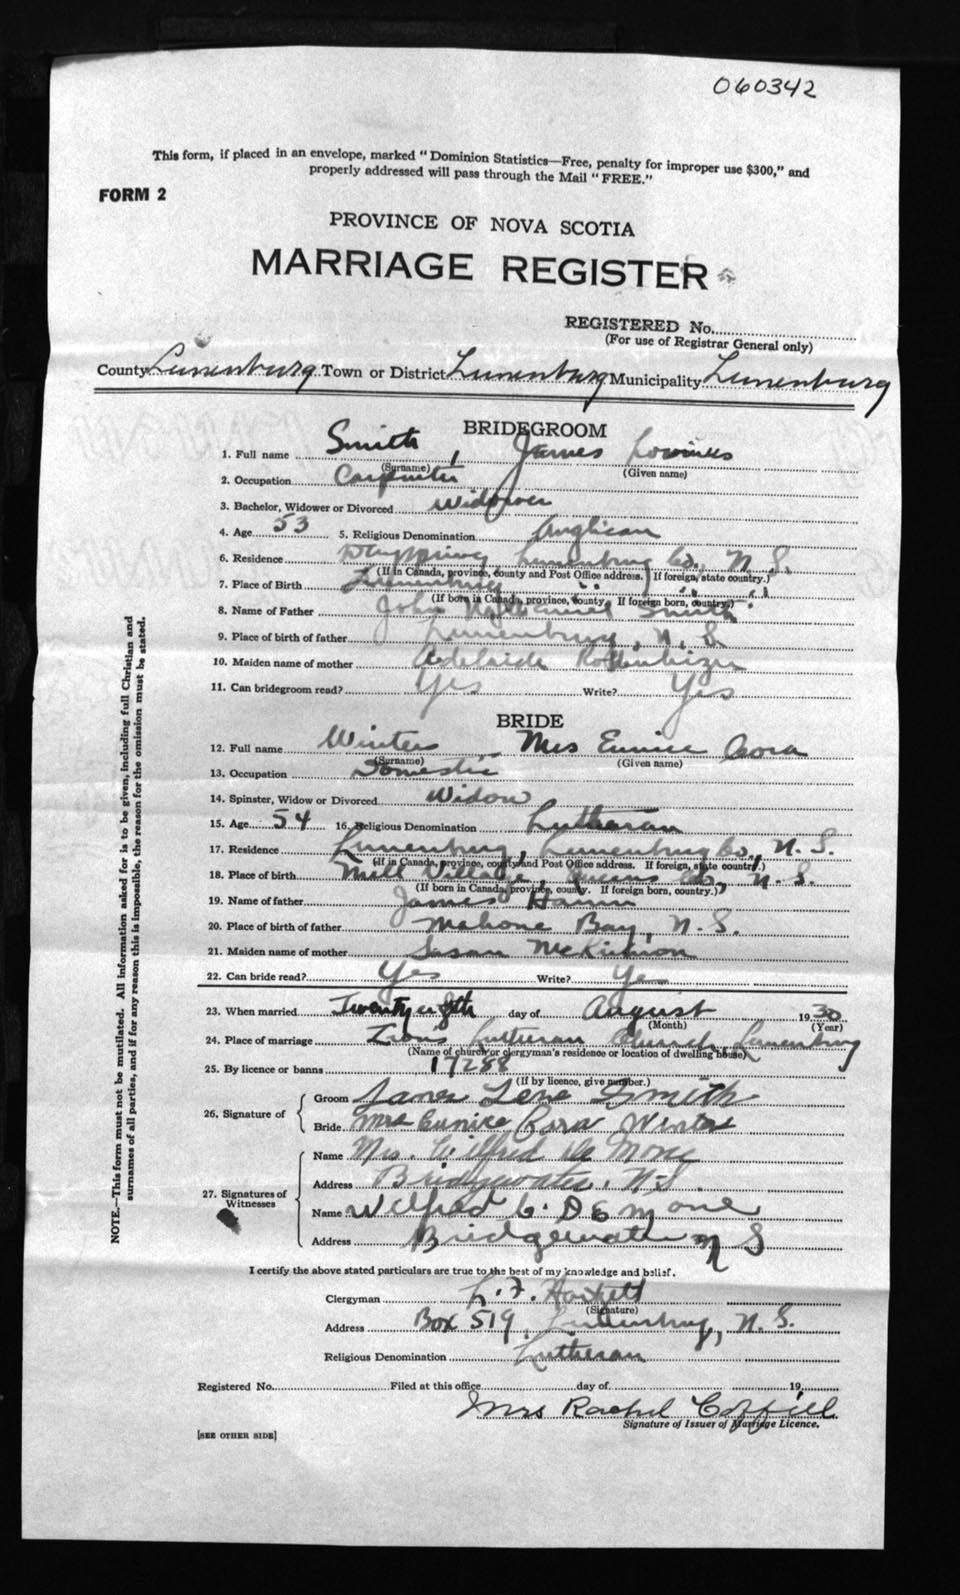 060342
This form, if placed in an envelope, marked "Dominion Statistics—Free, penalty for improper use $300," and
properly addressed will pass through the Mail "FREE."
FORM 2
PROVINCE OF NOVA SCOTIA
MARRIAGE REGISTER
REGISTERED No.
(For use of Registrar General only)
County Lunenburg Town or District Lunenburg Municipality Lunenburg
BRIDEGROOM
1. Full name Smith, James
(Surname) (Given name)
2. Occupation Carpenter
3. Bachelor, Widower or Divorced Widower
4. Age 53 5. Religious Denomination Anglican
6. Residence Lunenburg Co., N. S.
(If in Canada, province, county and Post Office address. If foreign, state country.)
7. Place of Birth Lunenburg " "
(If born in Canada, province, county. If foreign born, country.)
8. Name of Father John Nathaniel Smith
9. Place of birth of father Lunenburg, N. S.
10. Maiden name of mother Adelaide
11. Can bridegroom read? Yes Write? Yes
BRIDE
12. Full name Winters Mrs Eunice Cora
(Surname) (Given name)
13. Occupation Domestic
14. Spinster, Widow or Divorced Widow
15. Age 54 16. Religious Denomination Lutheran
17. Residence Lunenburg, Lunenburg Co., N. S.
(If in Canada, province, county and Post Office address. If foreign, state country.)
18. Place of birth Mill Village, Queens Co., N. S.
(If born in Canada, province, county. If foreign born, country.)
19. Name of father James Hamm
20. Place of birth of father Mahone Bay, N. S.
21. Maiden name of mother Susan McKinnon
22. Can bride read? Yes Write? Yes
23. When married Twenty eighth day of August 1930
(Month) (Year)
24. Place of marriage Zion's Lutheran Church, Lunenburg
(Name of church or clergyman's residence or location of dwelling house)
25. By licence or banns 17288
(If by licence, give number.)
26. Signature of
Groom James Smith
Bride Mrs Eunice Cora Winters
27. Signatures of Witnesses
Name Mrs. Wilfred De Mone
Address Bridgewater, N.S.
Name Wilfred C. DeMone
Address Bridgewater N S
I certify the above stated particulars are true to the best of my knowledge and belief.
Clergyman L. F. Hackett
(Signature)
Address Box 519, Lunenburg, N. S.
Religious Denomination Lutheran
Registered No. Filed at this office day of 19
Mrs Rachel Coffill
Signature of Issuer of Marriage Licence.
[SEE OTHER SIDE]
NOTE.—This form must not be mutilated. All information asked for is to be given, including full Christian and
surnames of all parties, and if for any reason this is impossible, the reason for the omission must be stated.